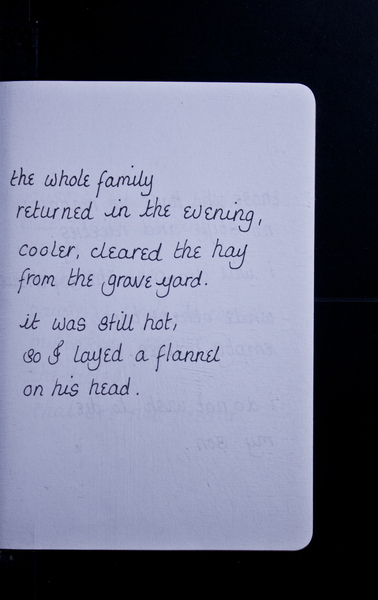 the whole family
returned in the evening,
cooler, cleared the hay
from the grave yard.
it was still hot,
so I layed a flannel
on his head.